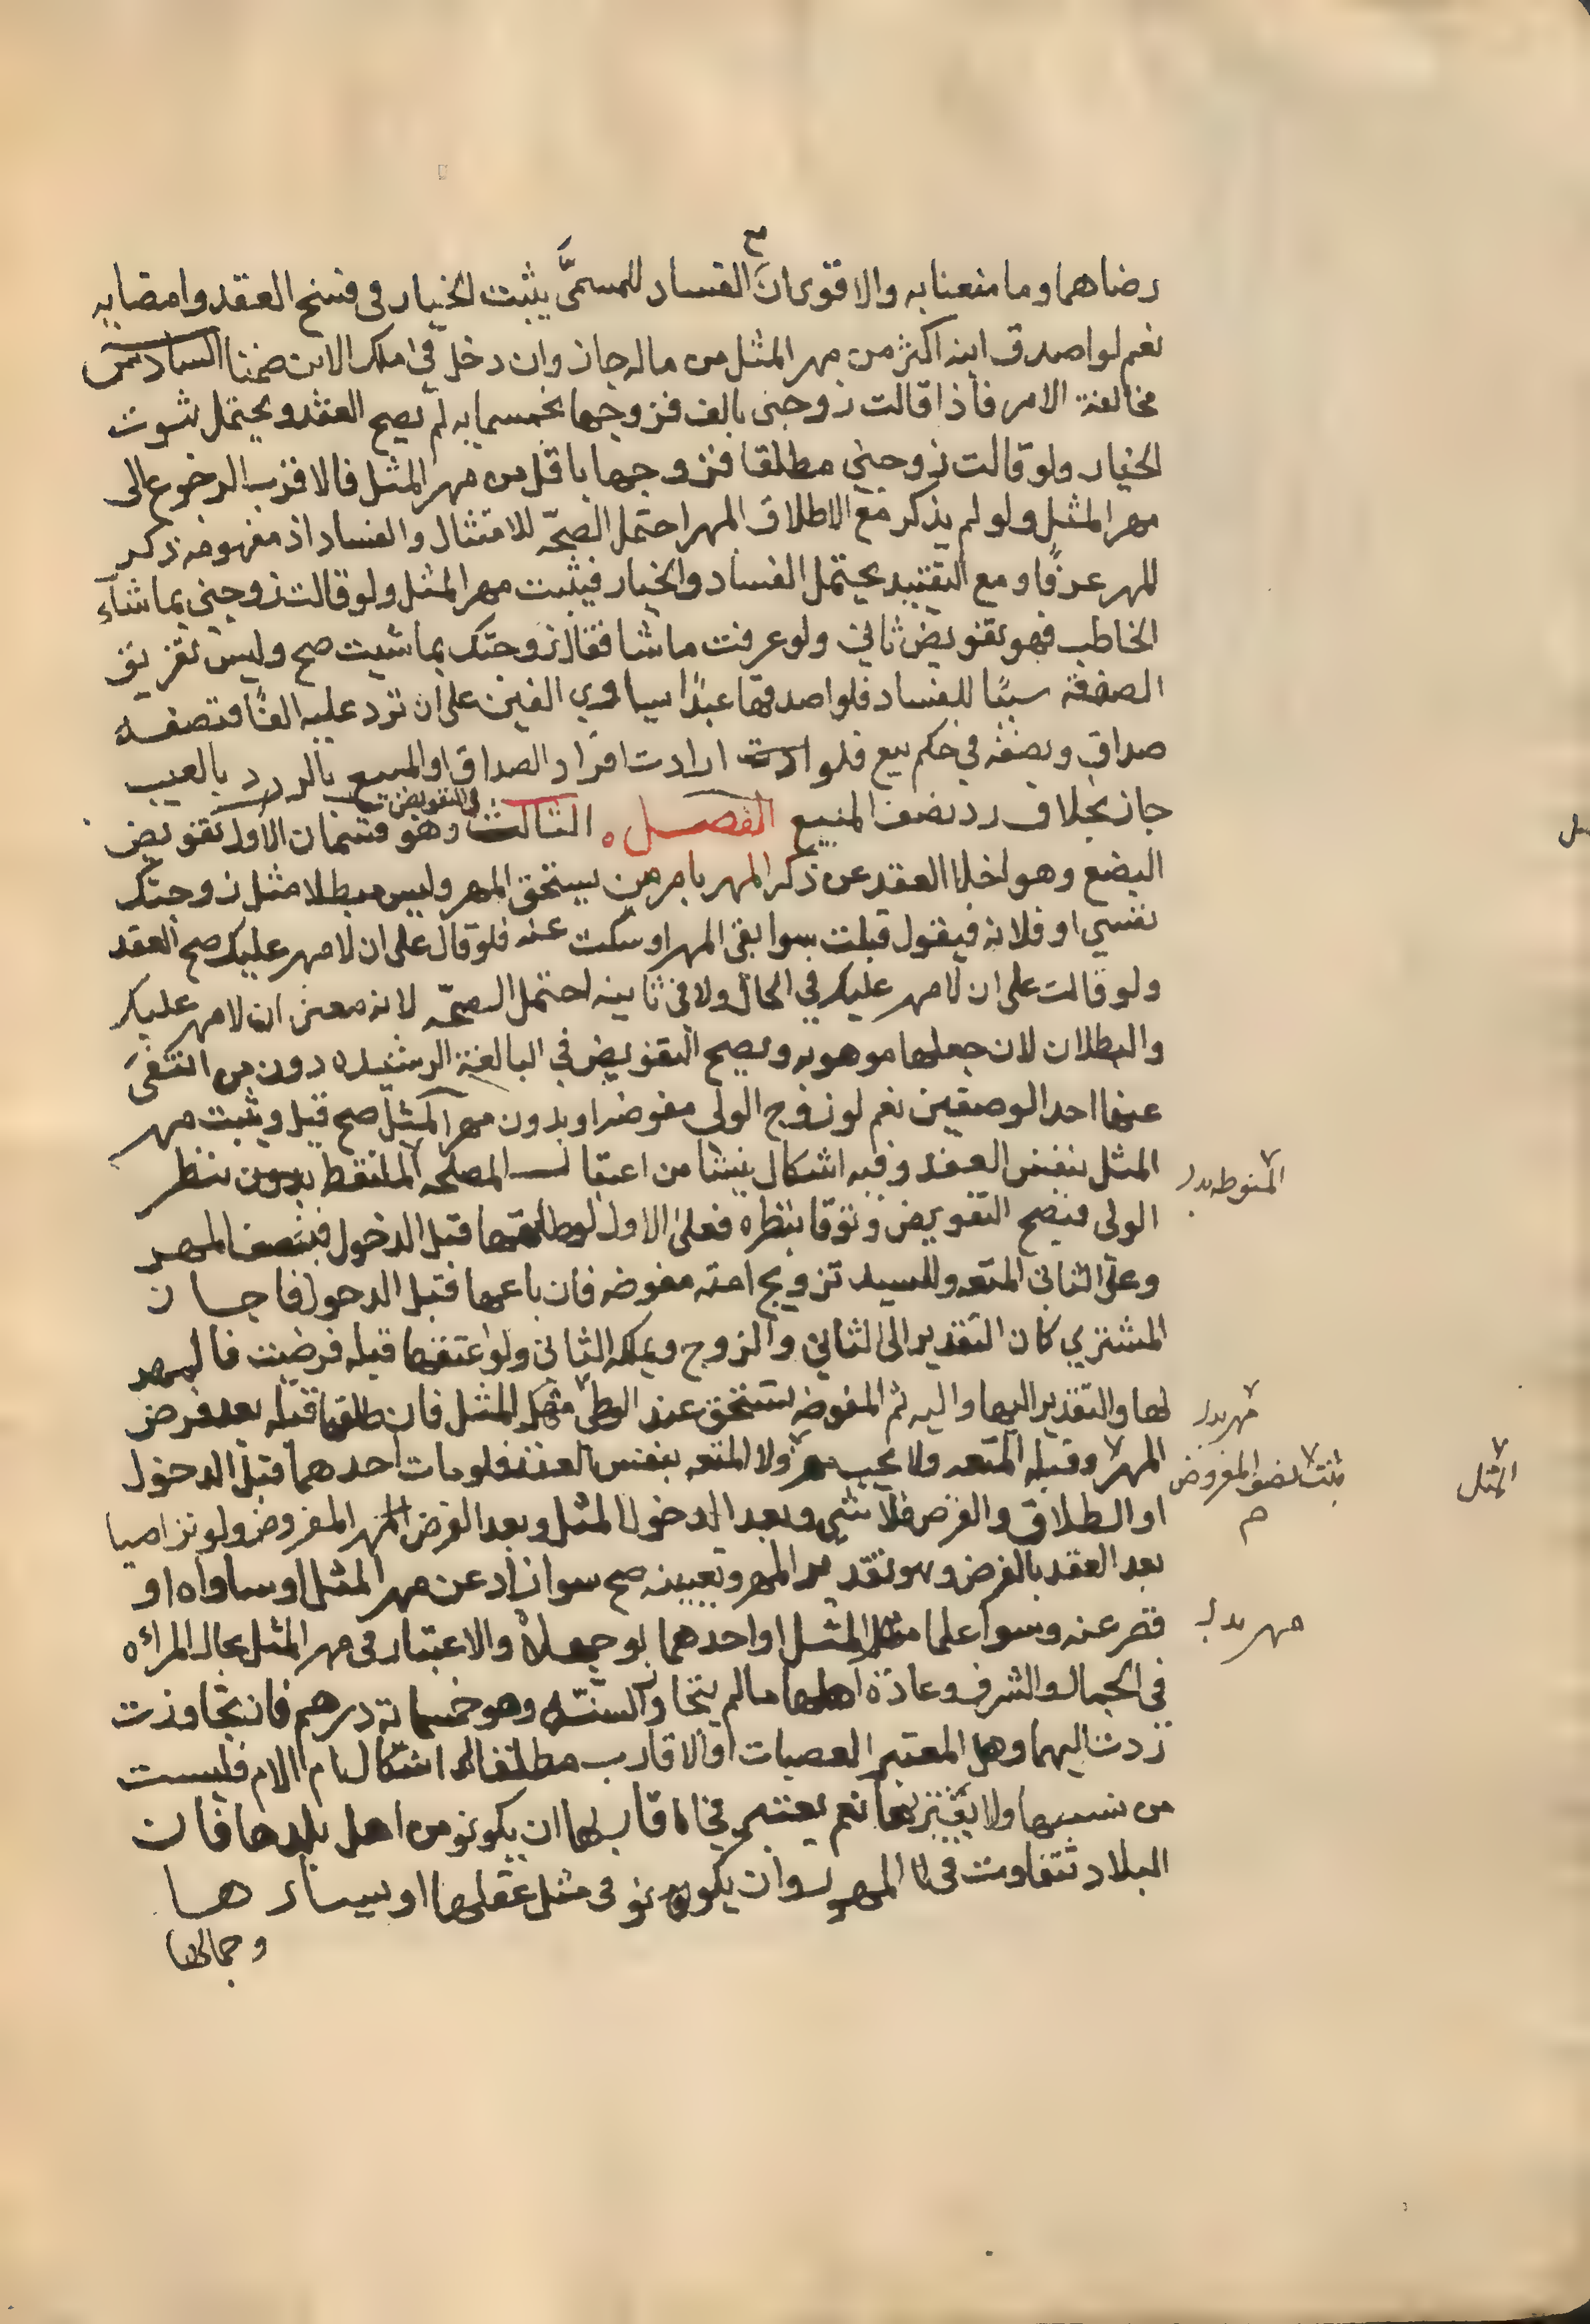 رضاهما وما منعنا به والاقوى ان مع الفساد للمسمى يثبت الخيار في فسخ العقد وامضايه
نعم لو اصدق ابنه اكثر من مهر المثل من ماله جاز وان دخل في ملك الابن ضمنا السادس
مخالفة الامر فاذا قالت زوجني بالف فزوجها بخمسمايه لم يصح العقد ويحتمل ثبوت
الخيار ولو قالت زوجني مطلقا فزوجها باقل من مهر المثل فالاقرب الرجوع الى
مهر المثل ولو لم يذكر مع الاطلاق المهر احتمل الصحّه للامتثال والفساد اذ مفهومه ذكر
المهر عرفًا ومع التقييد يحتمل الفساد والخيار فيثبت مهر المثل ولو قالت زوجني بما شاء
المخاطب فهو تفويض ثاني ولو عرفت ما شا فقال زوجتك بما شيت صح وليس تفريق
الصفقه سببًا للفساد فلو اصدقها عبدًا يساوي الفين على ان ترد عليه الفًا فنصفه
صداق ونصفه في حكم بيع فلو ارادت افراد الصداق او المبيع بالرد بالعيب
جاز بخلاف رد نصف المبيع الفصل الثالث في التفويض وهو قسمان الاول تفويض
البضع وهو اخلا العقد عن ذكر المهر بامر من يستحق المهر وليس مبطلا مثل زوجتك
نفسي او فلانه فيقول قبلت سوا بقى المهر او سكت عنه فلو قال على ان لا مهر عليك صح العقد
ولو قالت على ان لا مهر عليك في الحال ولا في ثانيه احتمل الصحّه لانه معنى ان لا مهر عليك
والبطلان لان جعلها موهوبه ويصح التفويض في البالغة الرشيده دون من انتفى
عنها احد الوصفين نعم لو زوج الولي مفوضه او بدون مهر المثل صح قيل ويثبت مهر
المثل بنفس العقد وفيه اشكال ينشا من اعتبار المصلحه الملتقط بدون بنظر
المنوطه بدل
الولي فيصح التفويض وثوقا بنظره فعلى الاول لو طلقها قبل الدخول فنصف المهر
وعلى الثاني المتعه وللسيد تزويج امته مفوضه فان باعها قبل الدخول فاجاز
المشتري كان التقدير الى الثاني والزوج ويملكه الثاني ولو اعتقها قبله فرضيت فالمهر
لها والتقدير اليها واليه ثم المفوضه تستحق عند الوطي المثل فان طلقها قبله بعد فرض
مهر بدل
المهر وقبله المتعه ولا يجب مهر ولا المتعه بنفس العقد فلو مات احدهما قبل الدخول
ثبت نصف المفروض م
المثل
او الطلاق والفرض فلا شي وبعد الدخول المثل وبعد الفرض المهر المفروض ولو تراضيا
بعد العقد بالفرض وهو تقدير المهر وتعيينه صح سوا زاد عن مهر المثل او ساواه او
قصر عنه وسوا علما المثل او احدهما او جهلاه والاعتبار في مهر المثل بحال المراه
مهر بدل
في الجمال والشرف وعادة اهلها ما لم يتجاوز السنّه وهو خمسماية درهم فان تجاوزت
ردت اليهما وهل المعتبر العصبات او الاقارب مطلقا اشكال ام الام فليست
من نسبها ولا يعتبر بها نعم يعتبر في اقاربها ان يكونو من اهل بلدها فان
البلاد تتفاوت في المهر وان يكونو في مثل عقلها او يسارها
وجمالها